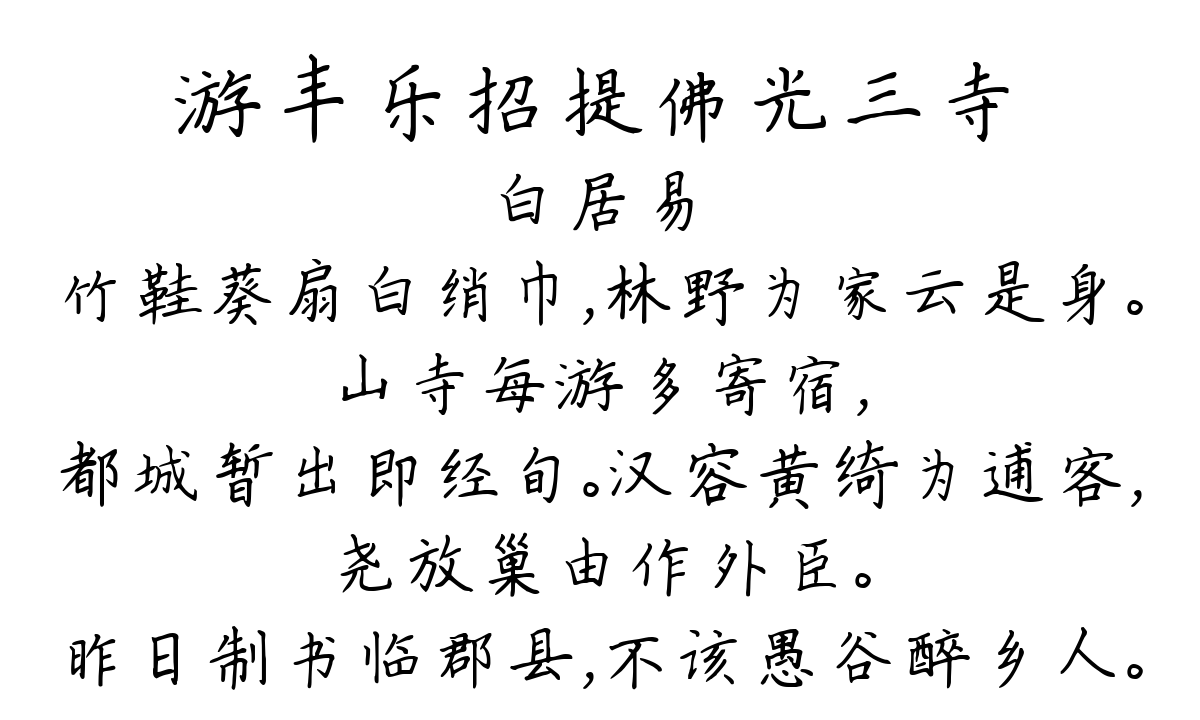 游丰乐招提佛光三寺
白居易
竹鞋葵扇白绡巾,林野为家云是身。
山寺每游多寄宿,
都城暂出即经旬。汉容黄绮为逋客,
尧放巢由作外臣。
昨日制书临郡县,不该愚谷醉乡人。